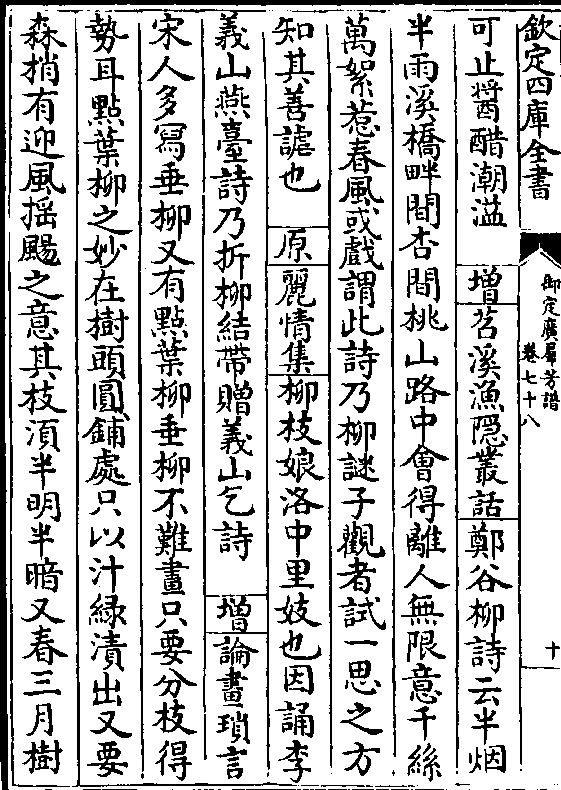 欽定四庫全書
御定廣羣芳譜
卷七十八
十
可止醤醋潮溢　增苕溪漁隐叢話鄭谷柳詩云半烟
半雨溪橋畔間杏間桃山路中會得離人無限意千絲
萬絮惹春風或戲謂此詩乃柳謎子觀者試一思之方
知其善謔也　原麗情集柳枝娘洛中里妓也因誦李
義山燕臺詩乃折柳結帶贈義山乞詩　增論畫瑣言
宋人多寫垂柳又有點葉柳垂柳不難畫只要分枝得
勢耳點葉柳之妙在樹頭圓鋪處只以汁緑漬出又要
森梢有迎風揺颺之意其枝湏半明半暗又春三月樹